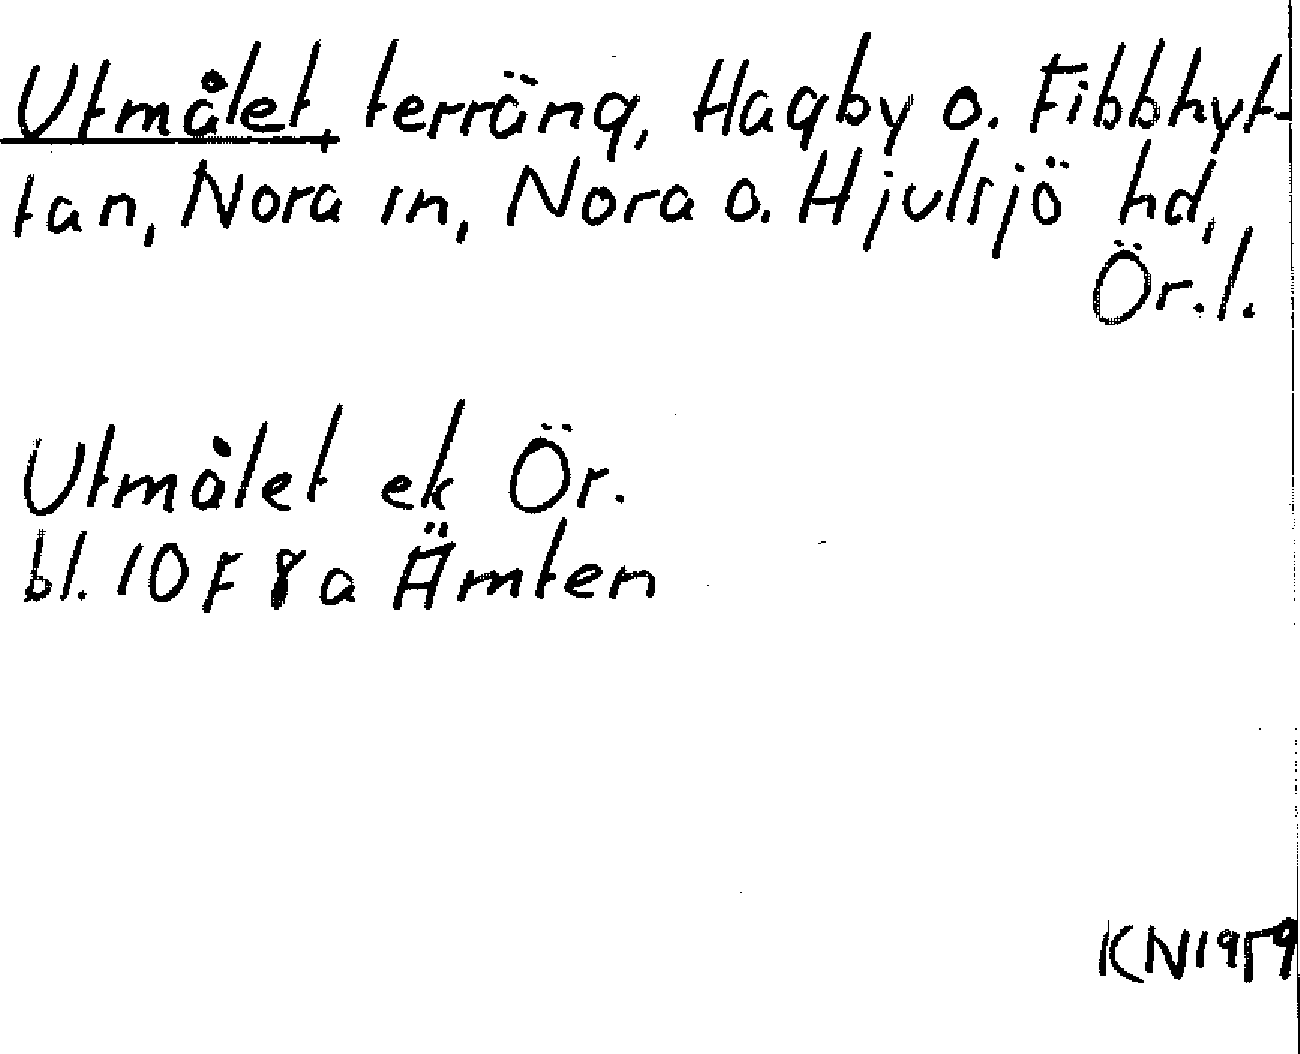 Utmålet, terräng, Hagby o. Fibbhyt-
tan, Nora sn, Nora o. Hjulsjö hd,
Ör. l.
Utmålet ek Ör.
bl. 10F 8a Ämten
KN1959